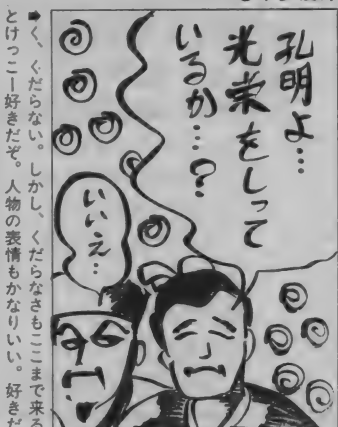 孔明よ…
光栄をしって
いるか…?
いいえ…
➡く、くだらない。しかし、くだらなさもここまで来る
とけっこー好きだぞ。人物の表情もかなりいい。好きだ